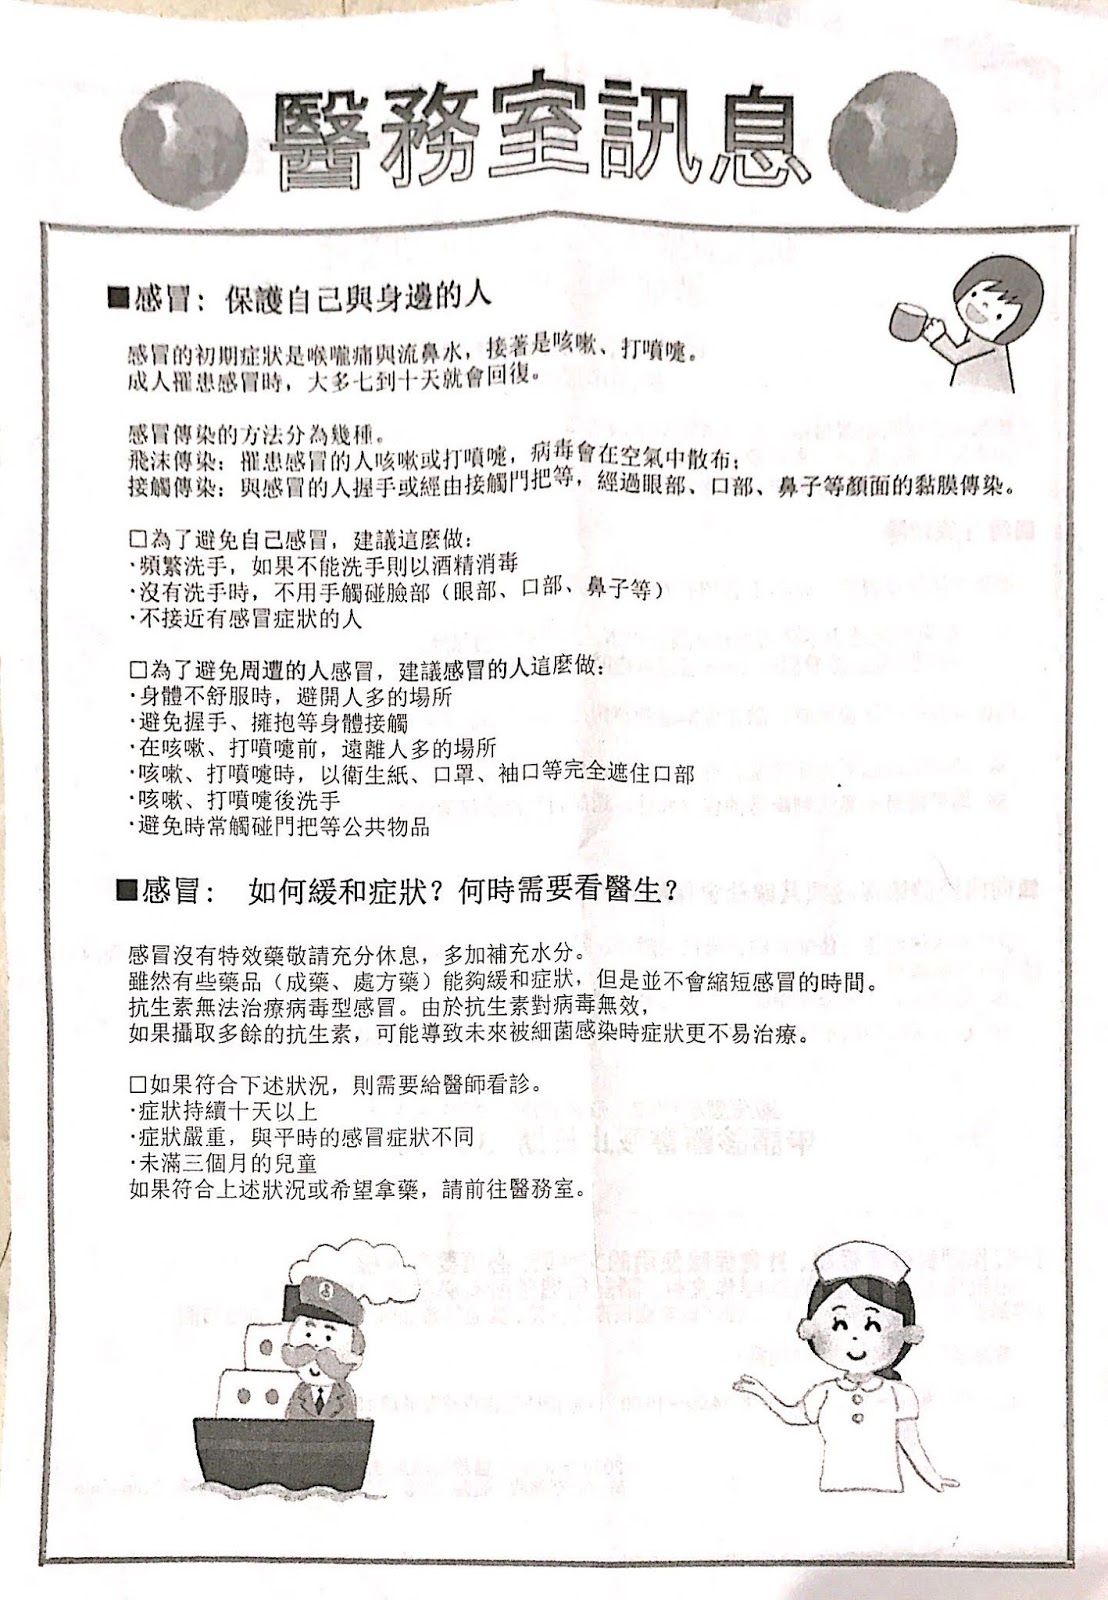 醫務室訊息
■感冒：保護自己與身邊的人
感冒的初期症狀是喉嚨痛與流鼻水，接著是咳嗽、打噴嚏。
成人罹患感冒時，大多七到十天就會回復。
感冒傳染的方法分為幾種。
飛沫傳染：罹患感冒的人咳嗽或打噴嚏，病毒會在空氣中散布；
接觸傳染：與感冒的人握手或經由接觸門把等，經過眼部、口部、鼻子等顏面的黏膜傳染。
□為了避免自己感冒，建議這麼做：
·頻繁洗手，如果不能洗手則以酒精消毒
·沒有洗手時，不用手觸碰臉部（眼部、口部、鼻子等）
·不接近有感冒症狀的人
□為了避免周遭的人感冒，建議感冒的人這麼做：
·身體不舒服時，避開人多的場所
·避免握手、擁抱等身體接觸
·在咳嗽、打噴嚏前，遠離人多的場所
·咳嗽、打噴嚏時，以衛生紙、口罩、袖口等完全遮住口部
·咳嗽、打噴嚏後洗手
·避免時常觸碰門把等公共物品
■感冒： 如何緩和症狀？何時需要看醫生？
感冒沒有特效藥敬請充分休息，多加補充水分。
雖然有些藥品（成藥、處方藥）能夠緩和症狀，但是並不會縮短感冒的時間。
抗生素無法治療病毒型感冒。由於抗生素對病毒無效，
如果攝取多餘的抗生素，可能導致未來被細菌感染時症狀更不易治療。
□如果符合下述狀況，則需要給醫師看診。
·症狀持續十天以上
·症狀嚴重，與平時的感冒症狀不同
·未滿三個月的兒童
如果符合上述狀況或希望拿藥，請前往醫務室。